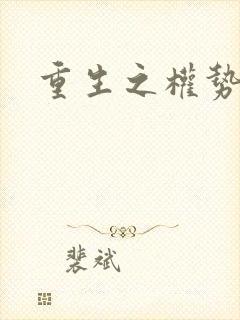 重生之權勢
裴斌